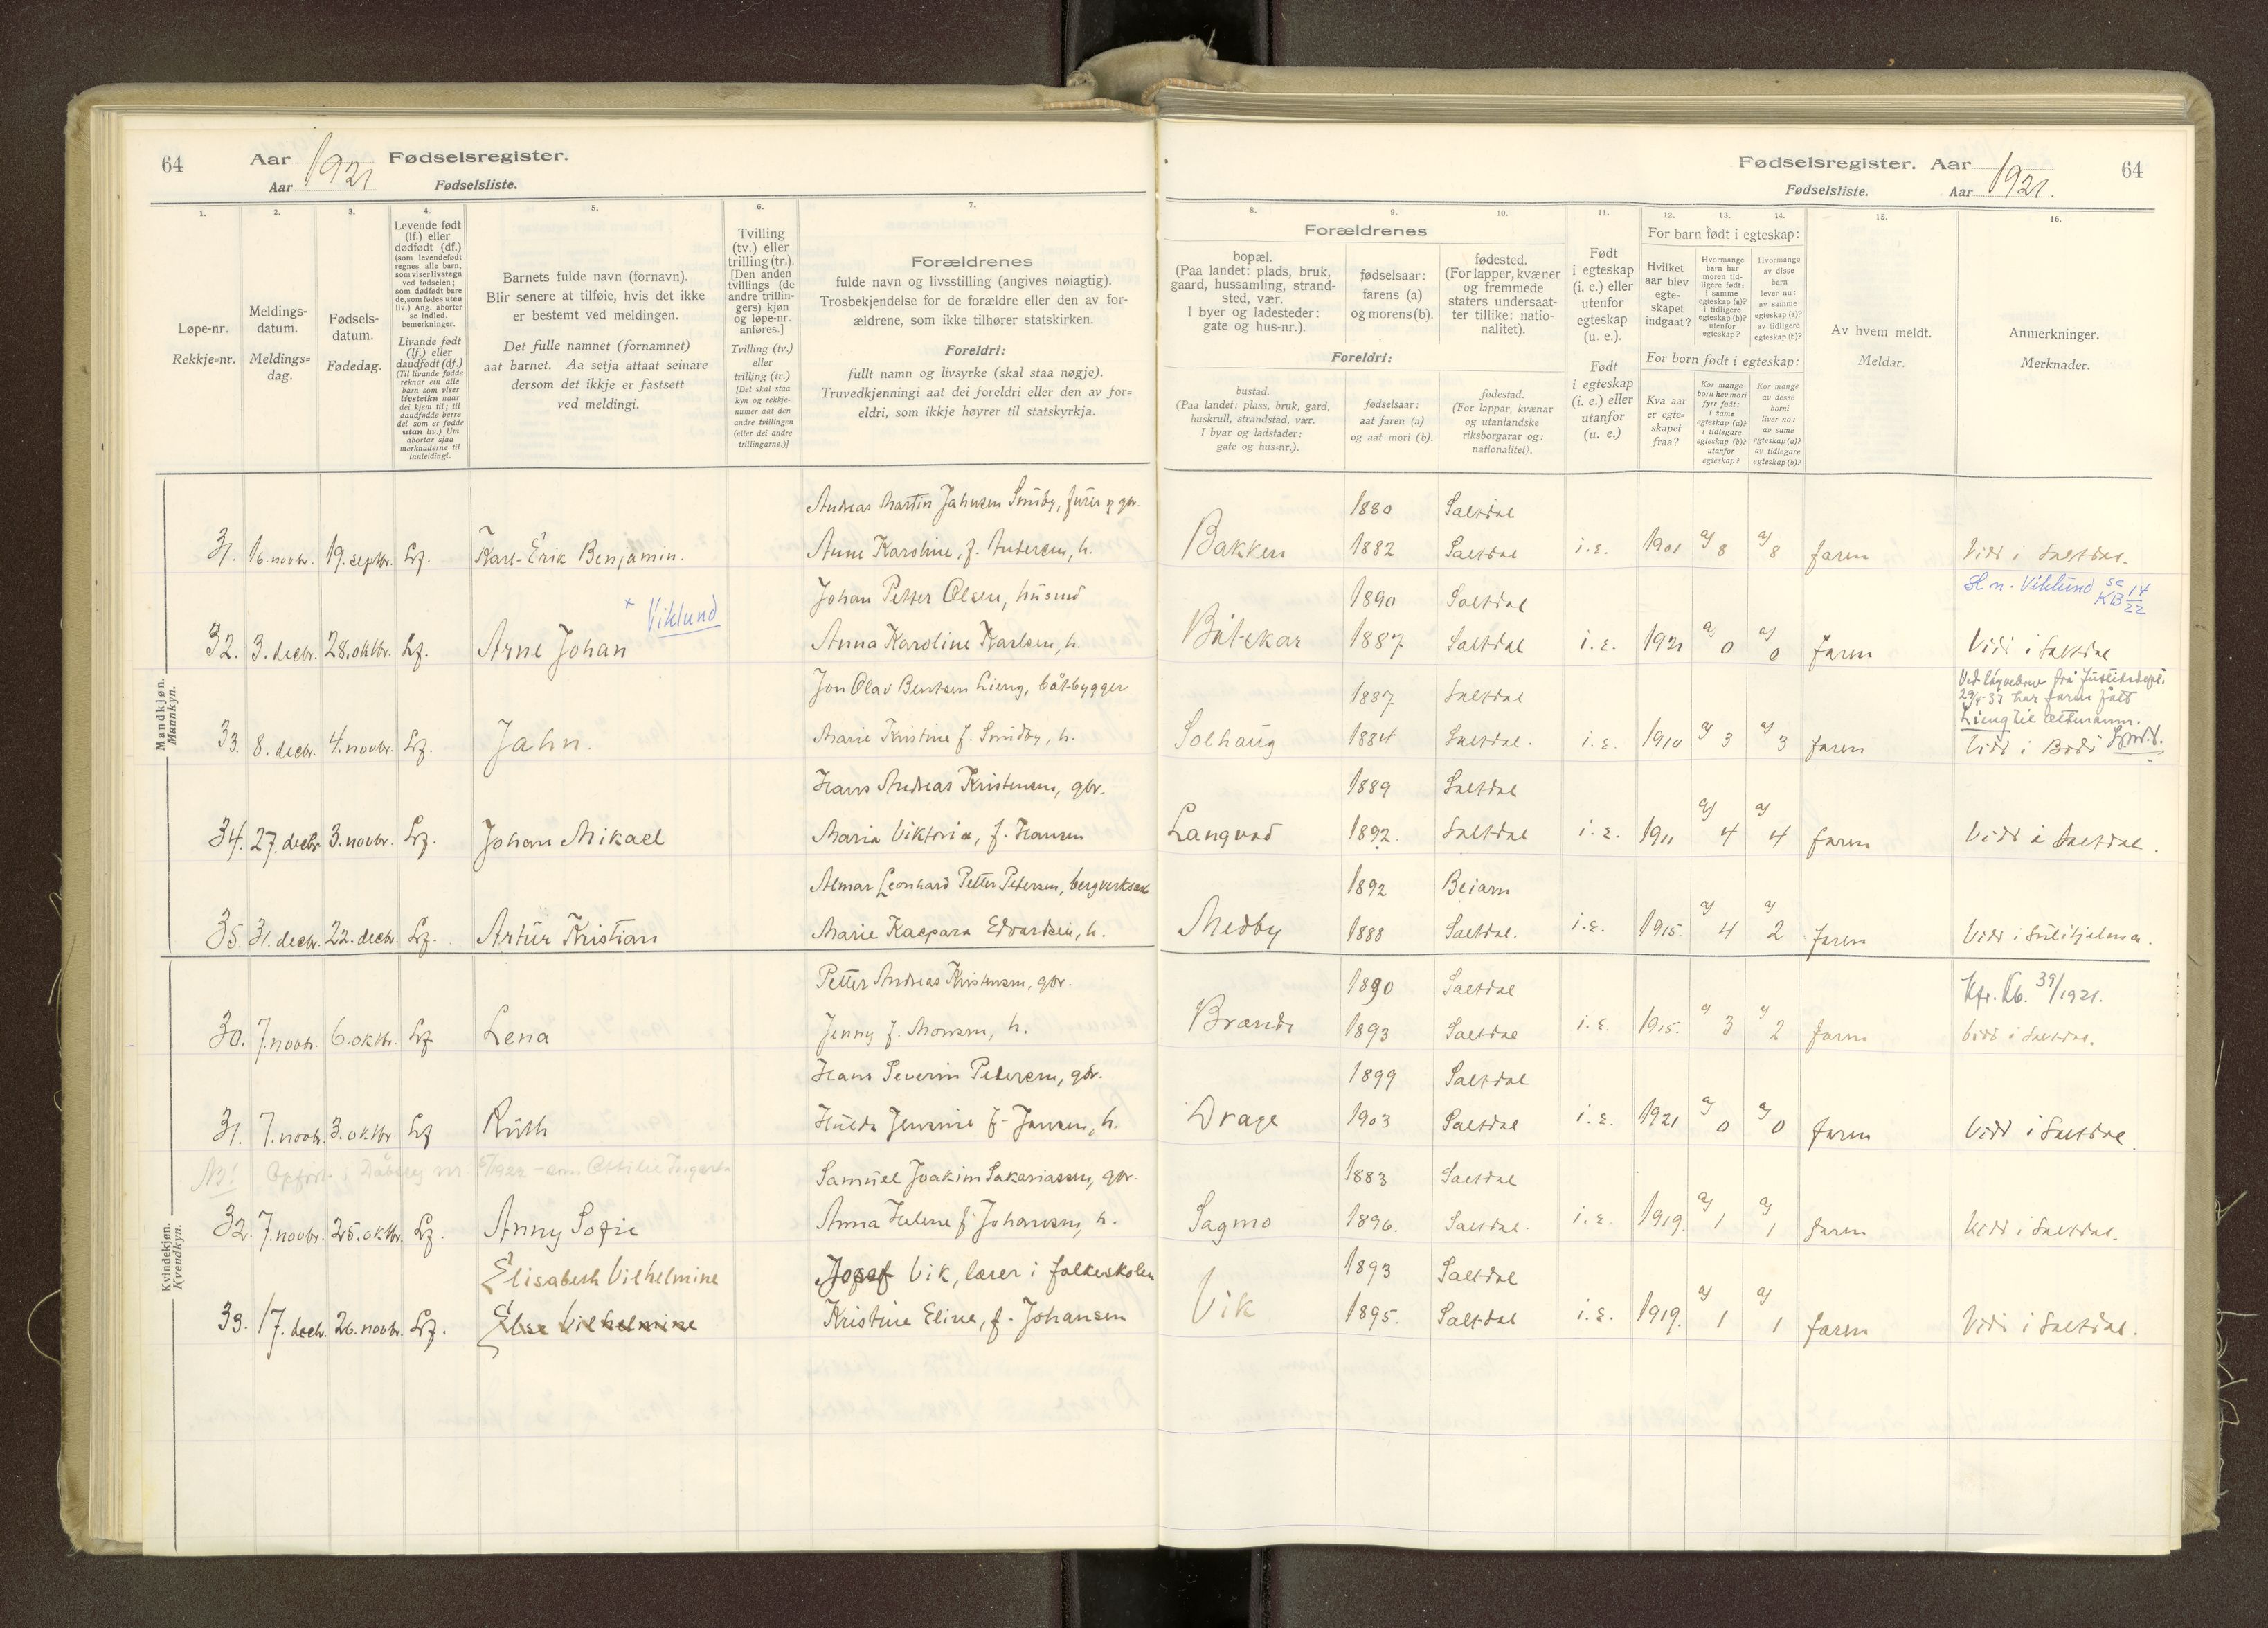 64 Aar 1921 Fødselsregister.
Aar Fødselsliste.
1.
2.
3.
4.
5.
6.
7.
Løpe-nr.
Rekkje=nr.
Meldings-
datum.
Meldings=
dag.
Fødsels-
datum.
Fødedag.
Levende født
(lf.) eller
dødfødt (df.)
(som levendefødt
regnes alle barn,
som viser livstegn
ved fødselen;
som dødfødt bare
de, som fødes uten
liv.) Ang. aborter
se indled.
bemerkninger.
Livande født
(lf.) eller
daudfødt (df.)
(Til livande fødde
reknar ein alle
barn som viser
livsteikn naar
dei kjem til; til
daudfødde berre
dei som er fødde
utan liv.) Um
abortar sjaa
merknaderne til
innleidingi.
Barnets fulde navn (fornavn).
Blir senere at tilføie, hvis det ikke
er bestemt ved meldingen.
Det fulle namnet (fornamnet)
aat barnet. Aa setja attaat seinare
dersom det ikkje er fastsett
ved meldingi.
Tvilling
(tv.) eller
trilling (tr.).
[Den anden
tvillings (de
andre trillin-
gers) kjøn
og løpe-nr.
anføres.]
Tvilling (tv.)
eller
trilling (tr.)
[Det skal staa
kyn og rekkje-
numer aat den
andre tvillingen
(eller dei andre
trillingarne.)]
Forældrenes
fulde navn og livsstilling (angives nøiagtig).
Trosbekjendelse for de forældre eller den av for-
ældrene, som ikke tilhører statskirken.
Foreldri:
fullt namn og livsyrke (skal staa nøgje).
Truvedkjenningi aat dei foreldri eller den av for=
eldri, som ikkje høyrer til statskyrkja.
Mandkjøn.
Mannkyn.
Andreas Martin Jahnsen Småby, furer og gbr.
31. 16. novbr. 19. septbr. Lf. Karl-Erik Benjamin. Anne Karoline, f. Andersen, h.
Johan Petter Olsen, husmd
× Viklund
32. 3. decbr. 28. oktbr. Lf. Arne Johan Anna Karoline Karlsen, h.
Jon Olav Bentsen Lieng, båtbygger
33. 8. decbr. 4. novbr. Lf. Jahn. Marie Kristine f. Småby, h.
Hans Andreas Kristensen, gbr.
34. 27. decbr. 3. novbr. Lf. Johan Mikael Maria Viktoria, f. Hansen
Almar Leonhard Petter Petersen, bergverksarb
35. 31. decbr. 22. decbr. Lf. Artur Kristian Marie Kaspara Edvardsen, h.
Kvindekjøn.
Kvendkyn.
Petter Andreas Kristensen, gbr.
30. 7. novbr. 6. oktbr. Lf Lena Jenny f. Monsen, h.
Hans Severin Petersen, gbr.
31. 7. novbr. 3. oktbr. Lf Ruth Hulda Jensine f. Jensen, h.
NB! Opført i Dåbsreg nr. 5/1922 - som Ottilie Ingerta
Samuel Joakim Sakariassen, gbr.
32. 7. novbr. 25. oktbr. Lf. Anny Sofie Anna Helene f. Johansen, h.
Elisabeth Vilhelmine Josef Vik, lærer i folkeskolen
33. 17. decbr. 26. novbr. Lf. Else Vilhelmine Kristine Eline, f. Johansen
Fødselsregister. Aar 1921. 64
Fødselsliste. Aar
8.
9.
10.
11.
12.
13.
14.
15.
16.
Forældrenes
bopæl.
(Paa landet: plads, bruk,
gaard, hussamling, strand-
sted, vær.
I byer og ladesteder:
gate og hus-nr.).
fødselsaar:
farens (a)
og morens (b).
fødested.
(For lapper, kvæner
og fremmede
staters undersaat-
ter tillike: natio-
nalitet).
Foreldri:
bustad.
(Paa landet: plass, bruk, gard,
huskrull, strandstad, vær.
I byar og ladstader:
gate og hus=nr.).
fødselsaar:
aat faren (a)
og aat mori (b).
fødestad.
(For lappar, kvænar
og utanlandske
riksborgarar og:
nationalitet).
Født
i egteskap
(i. e.) eller
utenfor
egteskap
(u. e.).
Født
i egteskap
(i. e.) eller
utanfor
(u. e.)
For barn født i egteskap:
Hvilket
aar blev
egte-
skapet
indgaat?
Hvormange
barn har
moren tid-
ligere født:
i samme
egteskap (a)?
i tidligere
egteskap (b)?
utenfor
egteskap?
Hvormange
av disse
barn
lever nu:
av samme
egteskap (a)?
av tidligere
egteskap (b)?
For born født i egteskap:
Kva aar
er egte=
skapet
fraa?
Kor mange
born hev mori
fyrr født:
i same
egteskap (a)?
i tidlegare
egteskap (b)?
utanfor
egteskap?
Kor mange
av desse
borni
liver no:
av same
egteskap (a)?
av tidlegare
egteskap (b)?
Av hvem meldt.
Meldar.
Anmerkninger.
Merknader.
1880 Saltdal
Bakken 1882 Saltdal i. e. 1901 a) 8 a) 8 faren Viet i Saltdal.
1890 Saltdal Sl n. Viklund se KB 14/22
Båtskar 1887 Saltdal i. e. 1921 a) 0 a) 0 faren Viet i Saltdal
1887 Saltdal Ved løyvebrev frå Justisdep.
har faren fått
Lieng til ættenamn.
Solhaug 1884 Saltdal. i. e. 1910 a) 3 a) 3 faren Viet i Bodø
1889 Saltdal
Langvad 1892. Saltdal i. e. 1911 a) 4 a) 4 faren Viet i Saltdal.
1892 Beiarn
Medby 1888 Saltdal. i. e. 1915. a) 4 a) 2 faren Viet i Sulitjelma.
1890 Saltdal Kfr. Kb. 39/1921.
Brændi 1893 Saltdal i. e. 1915. a) 3 a) 2 faren Viet i Saltdal.
1899 Saltdal
Drage 1903 Saltdal i. e. 1921 a) 0 a) 0 faren Viet i Saltdal.
1883 Saltdal
Sagmo 1896. Saltdal. i. e. 1919. a) 1 a) 1 faren Viet i Saltdal.
1893 Saltdal
Vik 1895. Saltdal i. e. 1919. a) 1 a) 1 faren Viet i Saltdal.